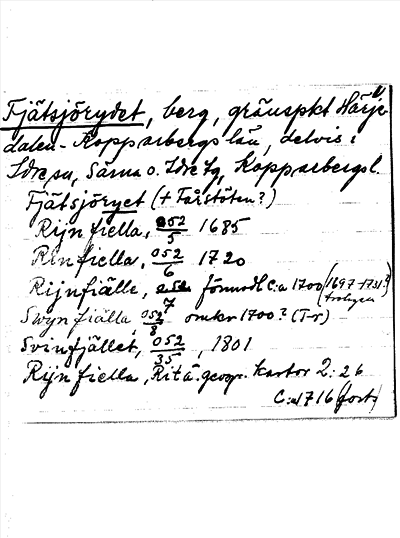 1)
Fjätsjörydet, berg, gränspkt Härje-
dalen - Kopparbergs län, delvis i
Idre sn, Särna o. Idre tg, Kopparbergs l.
Fjätsjöryet (+ Fårstöten?)
Rijn fiella, 052/5 1685
Rinfiella, 052/6 1720
Rijnfiälle, 052/7 förmodl c:a 1700 (1697-1731?)
troligen
Swyn fiälla, 052/8 omkr 1700? (T-r)
Svinfjället, 052/35, 1801
Rijn fiella, Rit. ä. geogr. kartor 2:26
C:a 1716 (forts)